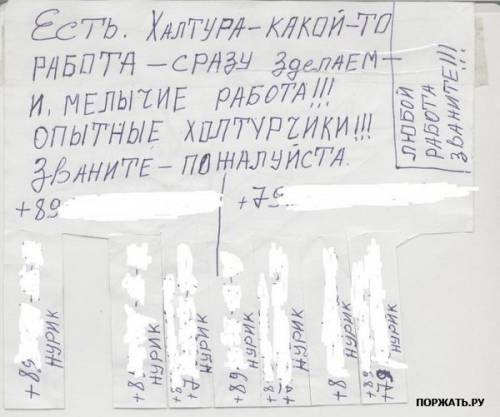 ЕСТЬ. ХАЛТУРА-КАКОЙ-ТО
РАБОТА-СРАЗУ ЗДЕЛАЕМ-
И. МЕЛЫЧИЕ РАБОТА!!!
ОПЫТНЫЕ ХОЛТУРЧИКИ!!!
ЗВАНИТЕ-ПОЖАЛУЙСТА.
ЛЮБОЙ
РАБОТА
ЗВАНИТЕ!!!
+89
+79
+89
НУРИК
+8
НУРИК
+7
НУРИК
+89
НУРИК
НУРИК
+8
НУРИК
НУРИК
ПОРЖАТЬ.РУ